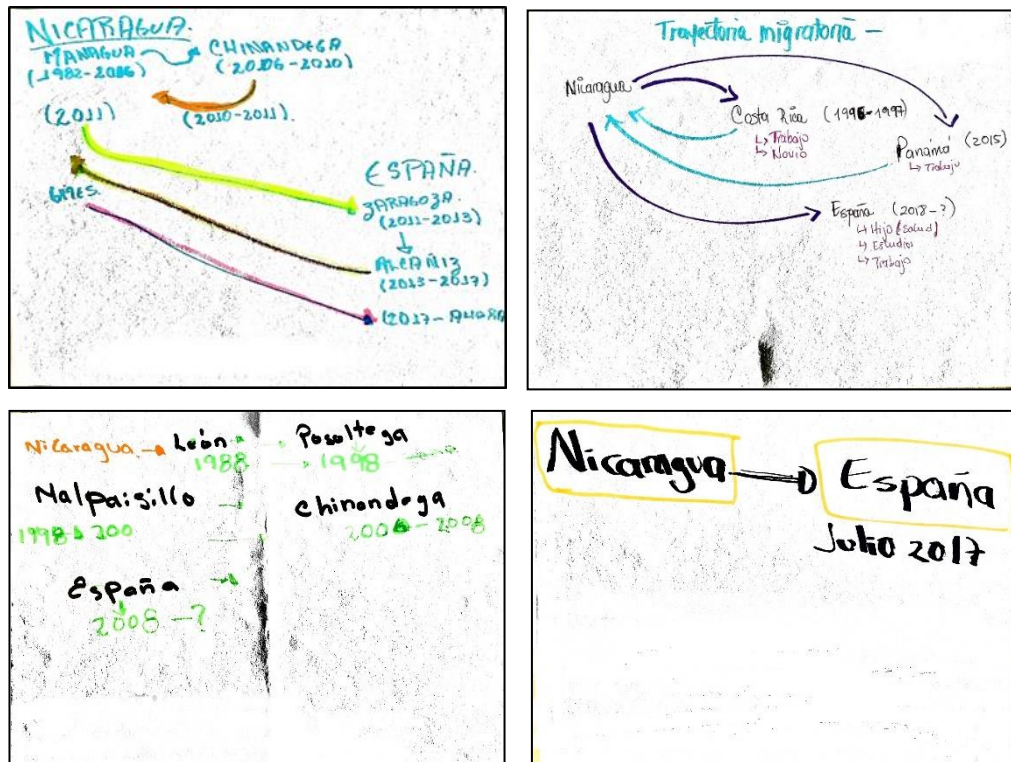 NICARAGUA.
MANAGUA CHINANDEGA
(1982-2006) (2006-2010)
(2010-2011).
(2011)
ESPAÑA.
ZARAGOZA
(2011-2013)
ALCAÑIZ
(2013-2017)
(2017-AHORA
Trayectoria migratoria -
Nicaragua
Costa Rica (1996-1997)
↳ Trabajo
↳ Novio
Panamá (2015)
↳ Trabajo
España (2018-?)
↳ Hijo (salud)
↳ Estudios
↳ Trabajo
Nicaragua → León Posoltega
1988 1998
Malpaisillo Chinandega
1998 → 200 2006-2008
España
2008-?
Nicaragua → España
Julio 2017